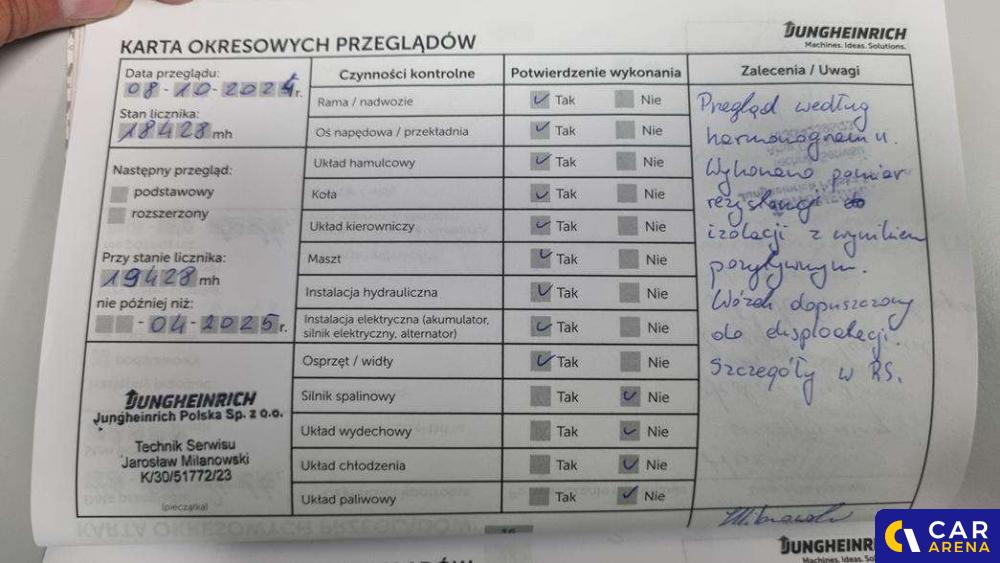 KARTA OKRESOWYCH PRZEGLĄDÓW
JUNGHEINRICH
Machines. Ideas. Solutions.
Data przeglądu:
08-10-2024 r.
Stan licznika:
18428 mh
Następny przegląd:
podstawowy
rozszerzony
Przy stanie licznika:
19428 mh
nie później niż:
-04-2025 r.
JUNGHEINRICH
Jungheinrich Polska Sp. z o.o.
Technik Serwisu
Jarosław Milanowski
K/30/51772/23
(pieczątka)
Czynności kontrolne
Potwierdzenie wykonania
Rama / nadwozie Tak Nie
Oś napędowa / przekładnia Tak Nie
Układ hamulcowy Tak Nie
Koła Tak Nie
Układ kierowniczy Tak Nie
Maszt Tak Nie
Instalacja hydrauliczna Tak Nie
Instalacja elektryczna (akumulator,
silnik elektryczny, alternator) Tak Nie
Osprzęt / widły Tak Nie
Silnik spalinowy Tak Nie
Układ wydechowy Tak Nie
Układ chłodzenia Tak Nie
Układ paliwowy Tak Nie
Zalecenia / Uwagi
Przegląd według
harmonogramu.
Wykonano pomiar
rezystancji
izolacji z wynikiem
pozytywnym.
Wózek dopuszczony
do eksploatacji.
Szczegóły w RS.
KARTA OKRESOWYCH PRZEGLĄDÓW
16
JUNGHEINR
Machines. Ideas. Solu
CAR
ARENA